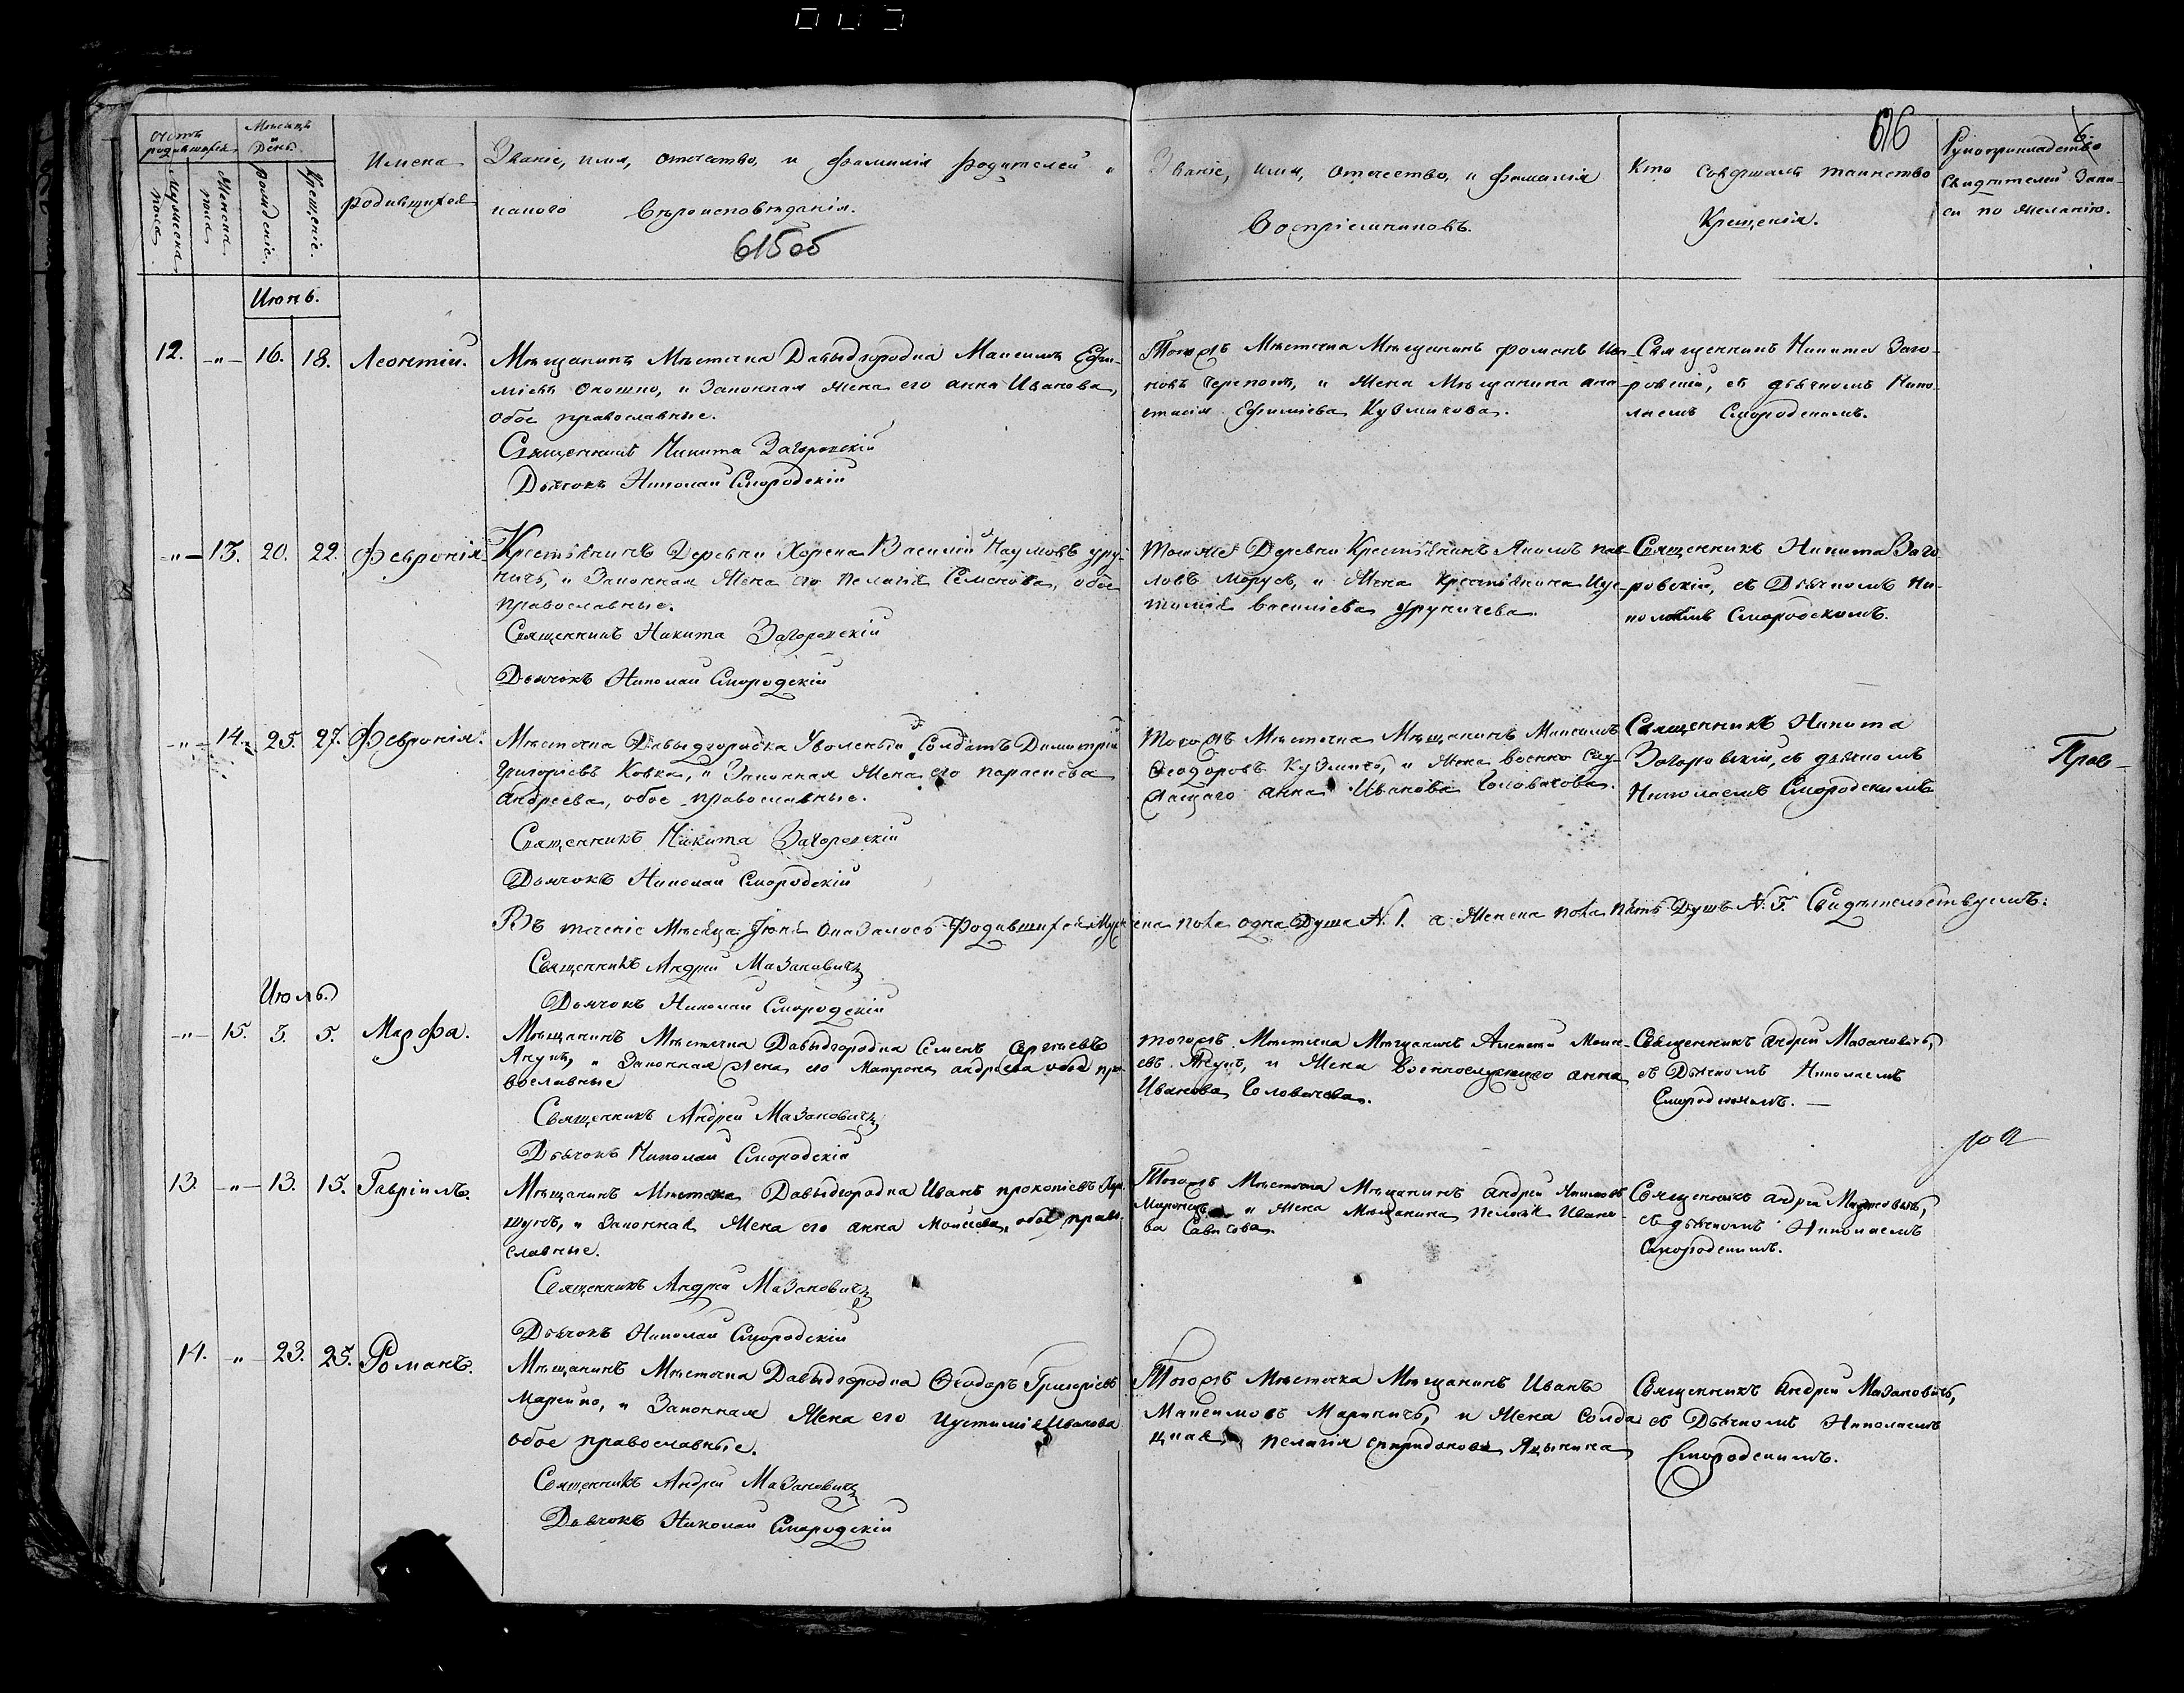 616
6
Счетъ родившихся
Мѣсяцъ и День.
Мужеска пола
Женска пола
рожденіе.
Крещеніе.
Имена
родившихся
Званіе, имя, отечество, и фамилія родителей и
какого вѣроисповѣданія.
615 об
Званіе, имя, отечество, и фамилія
воспріемниковъ.
Кто совершалъ таинство
Крещенія.
Рукоприкладство
свидѣтелей запи-
си по желанію.
Июнь.
12. -"- 16. 18. Леонтій.
Мѣщанинъ Мѣстечка Давыдгородка Максимъ Ефи-
міевъ , и Законная жена его анна Иванова,
обое православные.
Священникъ Никита Загоровскій
Дьячокъ Николай Смородскій
Тогожъ Мѣстечка Мѣщанинъ романъ Ива-
новъ , и жена Мѣщанина ана-
стасія Ефиміева Кузмичова.
Священникъ Никита Заго-
ровскій, съ дьячкомъ Нико-
лаемъ Смородскимъ.
-"- 13. 20. 22. Февронія
Крестьянинъ Деревни Хорска Василій Наумовъ
, и Законная жена его Пелагія Семенова, обое
православные.
Священникъ Никита Загоровскій
Дьячокъ Николай Смородскій
тойже Деревни Крестьянинъ Якимъ пав-
ловъ , и жена крестьянина Иус-
тинія василіева
Священникъ Никита Заго
ровскій, съ Дьячкомъ Ни-
колаемъ Смородскимъ.
-"- 14. 25. 27. Февронія.
Мѣстечка Давыдгородка Уволеный Солдатъ Димитрій
Григоріевъ Ковка, и Законная жена его параскева
андреева, обое православные.
Священникъ Никита Загоровскій
Дьячокъ Николай Смородскій
тогожъ Мѣстечка Мѣщанинъ Максимъ
Ѳеодоровъ Кузмичъ, и жена военно слу-
жащаго анна Иванова Головачова.
Священникъ Никита
Загоровскій, съ дьячкомъ
Николаемъ Смородскимъ
Прав-
Въ теченіе Мѣсяца Іюня оказалось родившихся Мужеска пола одна Душа №. 1. а женска пола пять Душъ №. 5. Свидѣтельствуемъ.
Священникъ Андрей Мазановичъ
Дьячокъ Николай Смородскій
Июль.
-"- 15. 3. 5. Марфа.
Мѣщанинъ Мѣстечка Давыдгородка Семенъ Сергіевъ
, и Законная жена его Матрона андреева обое пра-
вославные
Священникъ Андрей Мазановичъ
Дьячокъ Николай Смородскій
тогожъ Мѣстечка Мѣщанинъ Алексѣй Моисе-
евъ , и жена военнослужащаго анна
Иванова Головачова.
Священникъ андрей Мазановичъ,
съ Дьячкомъ Николаемъ
Смородскимъ. —
13. -"- 13. 15. Гавріилъ.
Мѣщанинъ Мѣстечка Давыдгородка Иванъ прокопіевъ
, и Законная жена его анна Моисеева, обое право-
славные.
Священникъ Андрей Мазановичъ
Дьячокъ Николай Смородскій
Тогожъ Мѣстечка Мѣщанинъ андрей Якимовъ
и жена Мѣщанина Пелагія Ивано-
ва
Священникъ андрей Мазановичъ,
съ дьячкомъ Николаемъ
Смородскимъ.
14. -"- 23. 25. Романъ.
Мѣщанинъ Мѣстечка Давыдгородка Ѳеодоръ Григоріевъ
, и Законная жена его Иустинія Иванова
обое православные.
Священникъ Андрей Мазановичъ
Дьячокъ Николай Смородскій
Тогожъ Мѣстечка Мѣщанинъ Иванъ
Максимовъ , и жена солда
цкая, пелагія спиридонова
Священникъ Андрей Мазановичъ,
съ Дьячкомъ Николаемъ
Смородскимъ.